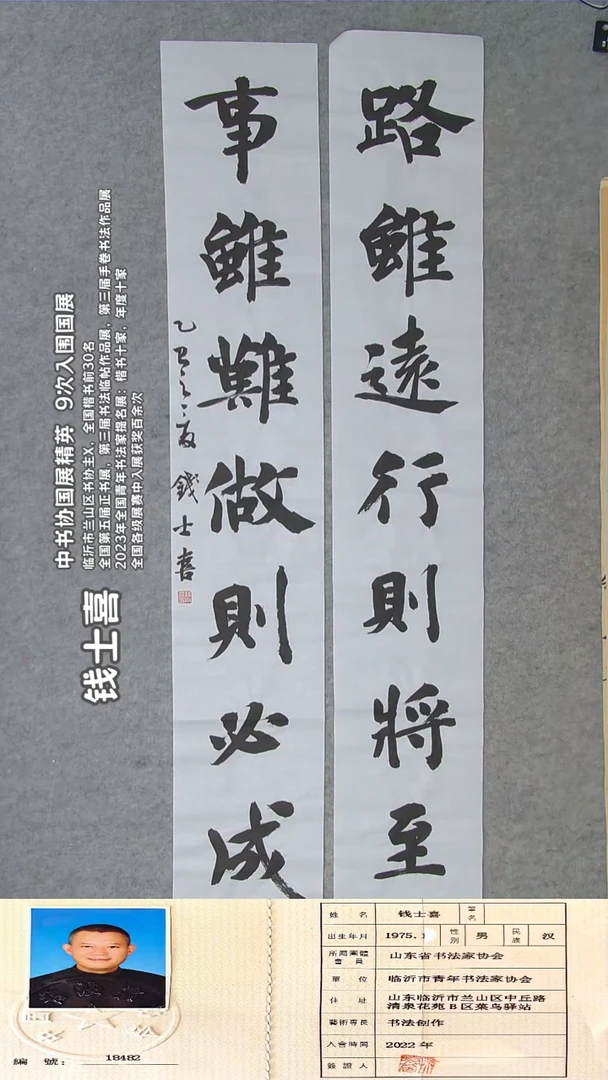 路雖遠行則將至
事雖難做則必成
乙巳之夏 錢士喜
钱士喜
中书协国展精英 9次入围国展
临沂市兰山区书协主X，全国楷书前30名
全国第五届正书展，第三届书法临帖作品展，第三届手卷书法作品展
2023年全国青年书法家提名展：楷书十家，年度十家
全国各级展赛中入展获奖百余次
編 號： 18482
姓 名 钱士喜 筆名
出生年月 1975.1 性別 男 民族 汉
所屬團體會員 山东省书法家协会
單 位 临沂市青年书法家协会
住 址 山东临沂市兰山区中丘路
清泉花苑B区菜鸟驿站
藝術專長 书法创作
入會時間 2022年
簽證人